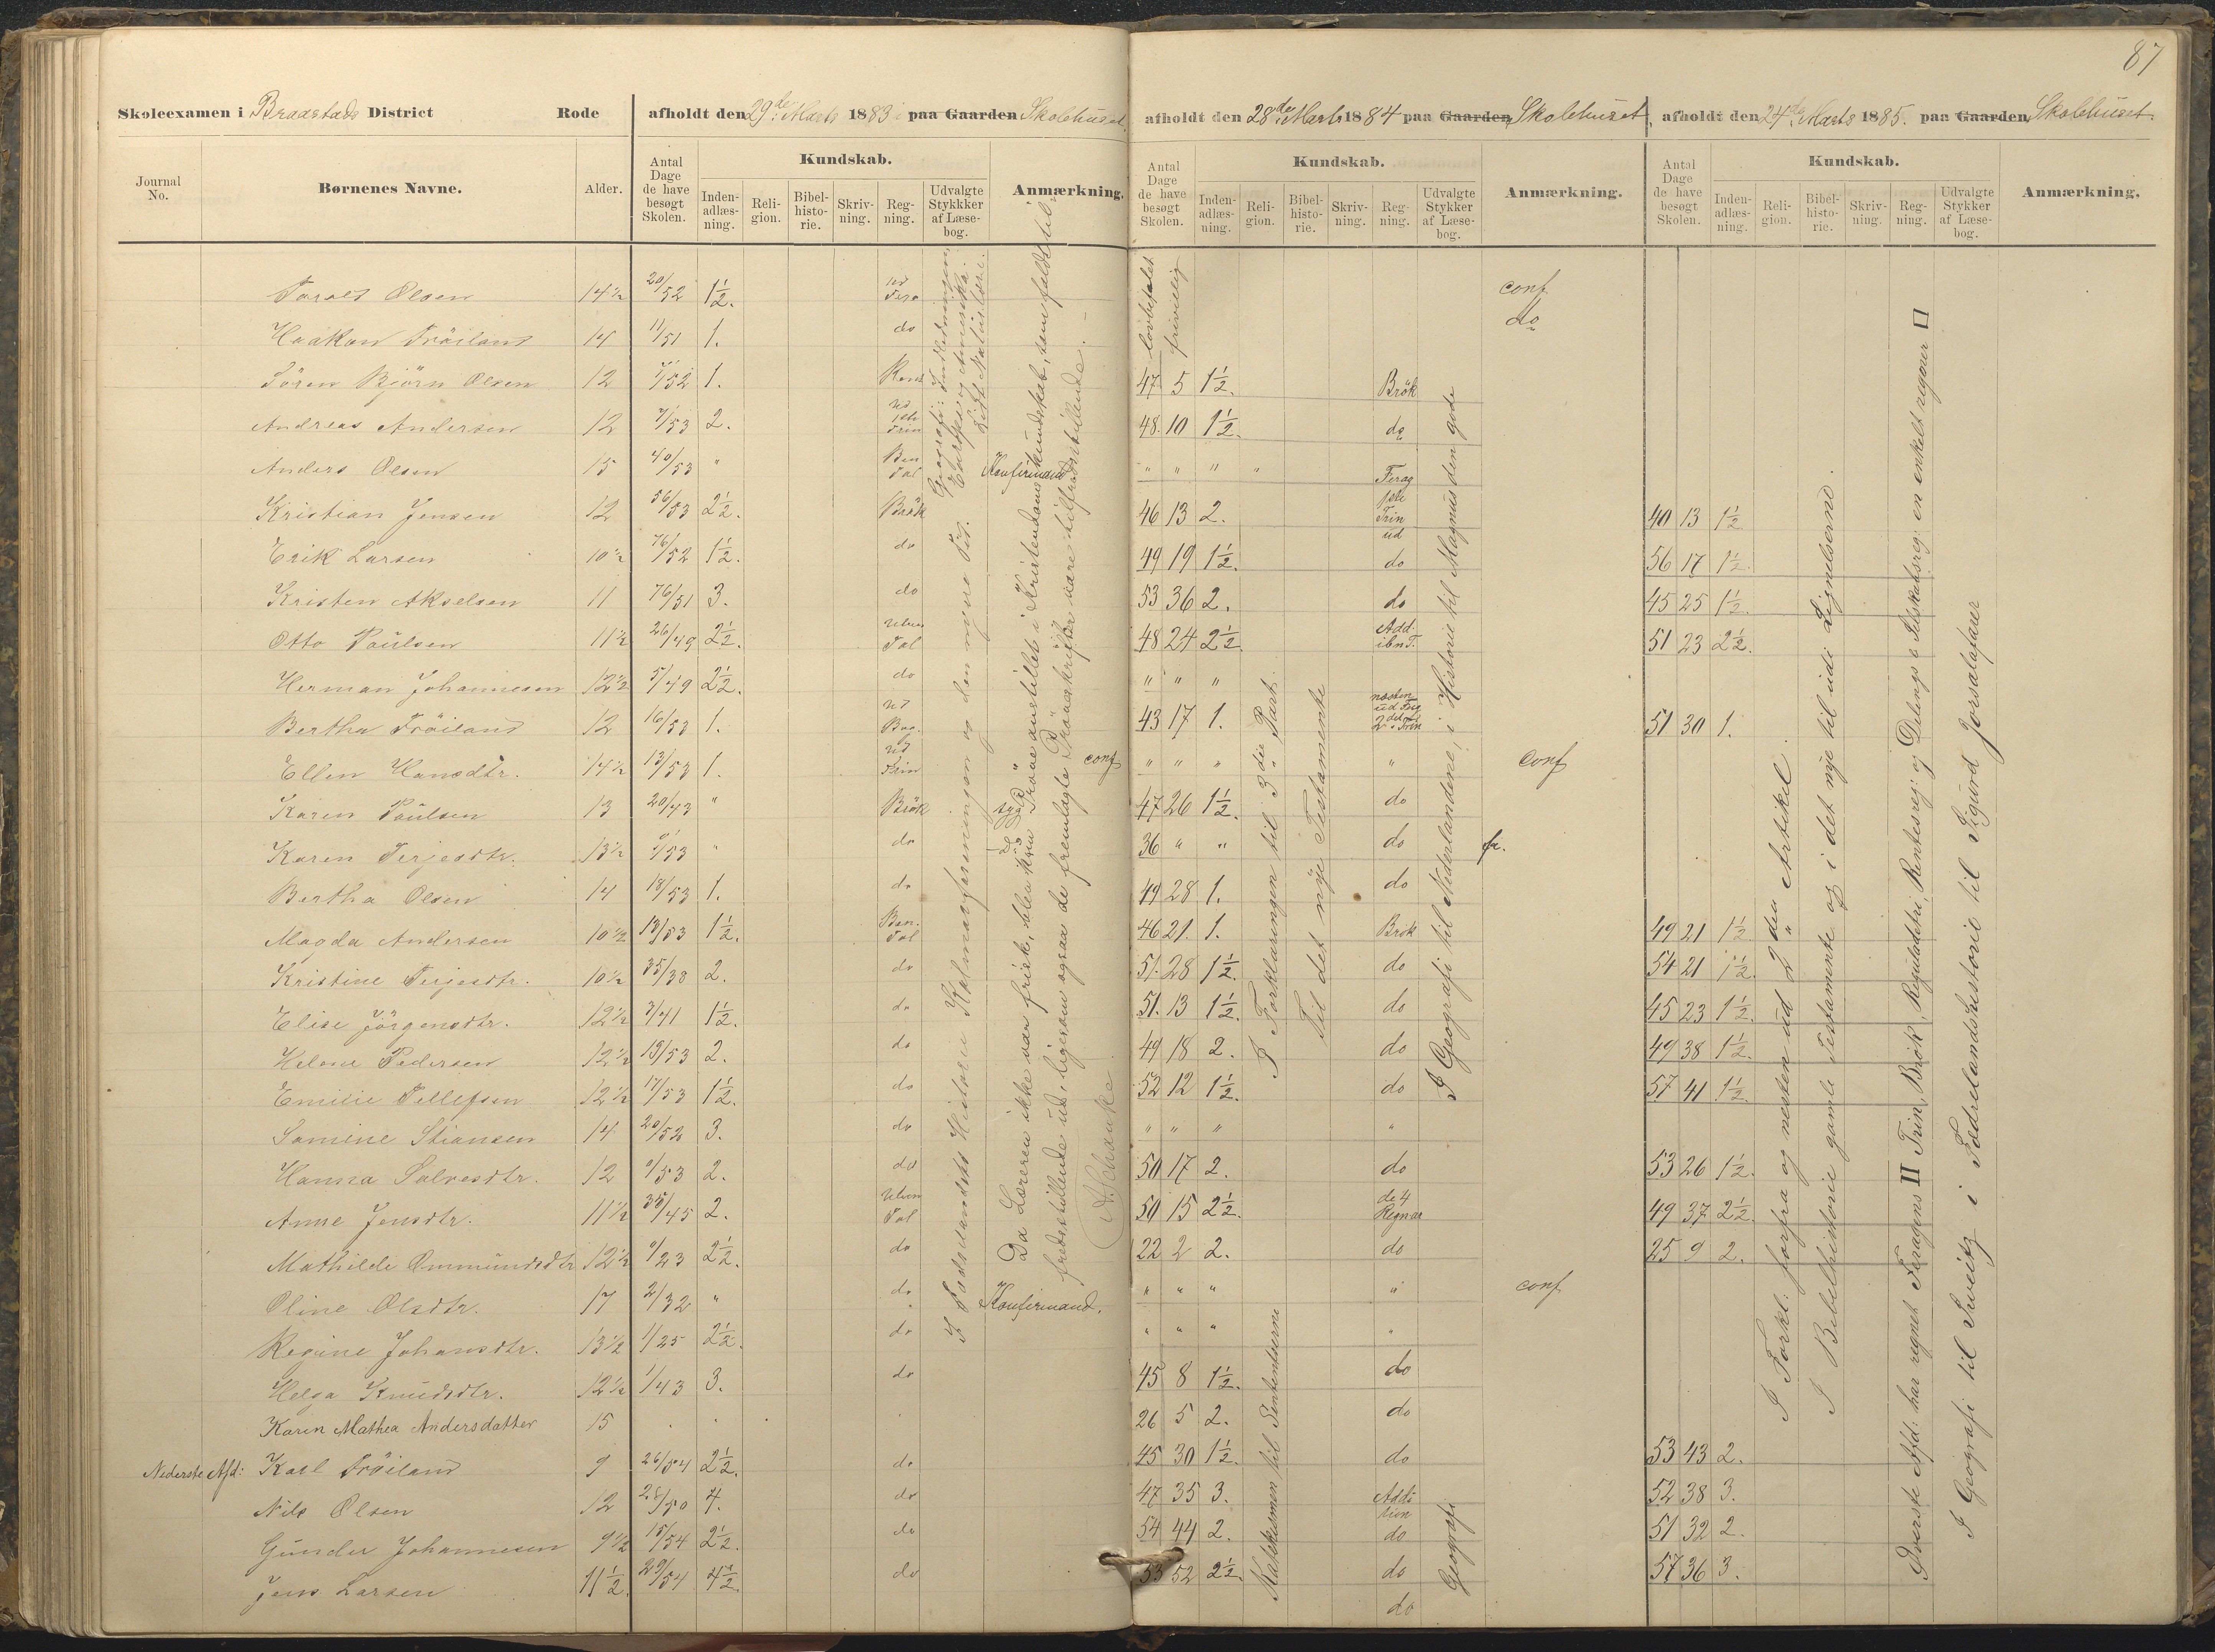 87
Skoleexamen i Braastads District Rode afholdt den 29de Marts 1883 i paa Gaarden Skolehuset. afholdt den 28de Marts 1884 paa Gaarden Skolehuset, afholdt den 24de Marts 1885. paa Gaarden Skolehuset.
Journal No. Børnenes Navne. Alder. Antal Dage de have besøgt Skolen. Kundskab. Inden-adlæs-ning. Reli-gion. Bibel-histo-rie. Skriv-ning. Reg-ning. Udvalgte Stykkker af Læse-bog. Anmærkning.
Antal Dage de have besøgt Skolen. Kundskab. Inden-adlæs-ning. Reli-gion. Bibel-histo-rie. Skriv-ning. Reg-ning. Udvalgte Stykker af Læse-bog. Anmærkning.
Antal Dage de have besøgt Skolen. Kundskab. Inden-adlæs-ning. Reli-gion. Bibel-histo-rie. Skriv-ning. Reg-ning. Udvalgte Stykker af Læse-bog. Anmærkning.
lovbefalet frivillig
Olsen 14½ 20/52 1½. conf
Haakon Fröiland 14 11/51 1. do do
Sören Björn Olsen 12 /52 1. 47 5 1½. Brök
Andreas Andersen 12 7/53 2. 48. 10 1½. do
Anders Olsen 15 40/53 " Konfirmand " " " "
Kristian Jensen 12 56/53 2½. Brök 46 13 2. Trin ud 40 13 1½
Erik Larsen 10½ 76/52 1½. do 49 19 1½. do 56 17 1½.
Kristen Akselsen 11 76/51 3. do 53 36 2. do 45 25 1½.
Otto Paulsen 11½ 26/49 2½. Tal 48 24 2½. Add. 51 23 2½.
Herman Johannesen 12½ 5/49 2½. do " " "
Bertha Fröiland 12 16/53 1. 43 17 1. næsten 51 30 1.
Ellen Hansdtr. 14½ 13/53 1. ud Trin conf " " " " conf
Karen Paulsen 13 20/43 " Brök syg 47 26 1½. do
Karen Terjesdtr. 13½ /53 " do 36 " " do
Bertha Olsen 14 18/53 1. do 49 28 1. do
Magda Andersen 10½ 13/53 1½. Tal 46 21. 1. Brøk 49 21 1½
Kristine Terjesdtr. 10½ 35/38 2. do 51. 28 1½. do 54 21 1½.
Elise Jörgensdtr. 12½ 3/41 1½. do 51. 13 1½. do 45 23 1½.
Helene Pedersen 12½ 19/53 2. do 49 18 2. do 49 38 1½.
Emilie Tellefsen 12½ 17/53 1½. do 52 12 1½. do 57 41 1½.
Samine Stiansen 14 20/52 3. do " " " "
Hanna Salvesdtr. 12 /53 2. do 50 17 2. do 53 26 1½.
Anne Jensdtr. 11½ 35/45 2. Tal 50 15 2½. de 4 Regnar 49 37 2½.
Mathilde Ommundsdtr 12½ /23 2½. do 22 2 2. do 25 9 2.
Oline Olsdtr. 17 2/32 " do Konfirmand. " " " " conf
Regine Johansdtr. 13½ 1/25 2½. do " " " "
Helga Knudsdtr. 12½ 1/43 3. do 45 8 1½. do
Karen Mathea Andersdatter 15 26 5 2. do
Nederste Afd: Karl Fröiland 9 26/54 2½. do 45 30 1½. do 53 43 2.
Nils Olsen 12 28/50 4. do 47 35 3. Addition 52 38 3.
Gunder Johannesen 9½ 15/54 2½. do 54 44 2. do 51 32 2.
Jens Larsen 11½. 29/54 4½. do 53 52 2½. do 57 36 3.
do
Geografi: Indledningen, Europa og Amerika.
I Fædrelandets Historie Kalmarforeningen og den nyere Tid.
Da Læreren ikke var frisk, blev kun Pröve anstillet i Kristendomskundskab, som faldt til-
fredsstillende ud, ligesom ogsaa de fremlagte Pröveskrifter vare tilfredsstillende.
A. Schanke
I Forklaringen til 3die Part.
Til det nye Testamente
Katekismen til Sententserne
I Geografi til Nederlandene, i Historie til Magnus den gode
Geografi
I Forkl: forfra og næsten ud 2den Artikel.
I Bibelhistorie gamle Testamente og i det nye til udi Lignelserne.
Øverste Afd: har regnet Feragens II Trin, Brök, Reguladetri, Rentesreg: og Delings o Selskabsreg: en enkelt regner □
I Geografi til Sveitz i Fædrelandshistorie til Sigurd Jorsalafarer